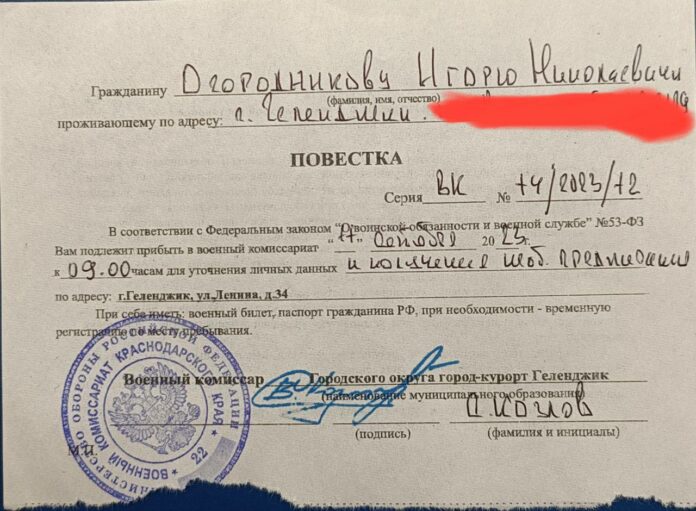 Гражданину Огородникову Игорю Николаевичу
(фамилия, имя, отчество)
проживающему по адресу: г. Геленджик.
ПОВЕСТКА
Серия ВК № 14/2023/12
В соответствии с Федеральным законом "О воинской обязанности и военной службе" №53-ФЗ
Вам подлежит прибыть в военный комиссариат "17" октября 2023г.
к 09.00 часам для уточнения личных данных и получения моб. предписания
по адресу: г.Геленджик, ул.Ленина, д.34
При себе иметь: военный билет, паспорт гражданина РФ, при необходимости - временную
регистрацию по месту пребывания.
Военный комиссар Городского округа город-курорт Геленджик
(наименование муниципального образования)
Козлов
(подпись) (фамилия и инициалы)
М.П.
МИНИСТЕРСТВО ОБОРОНЫ РОССИЙСКОЙ ФЕДЕРАЦИИ
ВОЕННЫЙ КОМИССАРИАТ КРАСНОДАРСКОГО КРАЯ
* 22 *